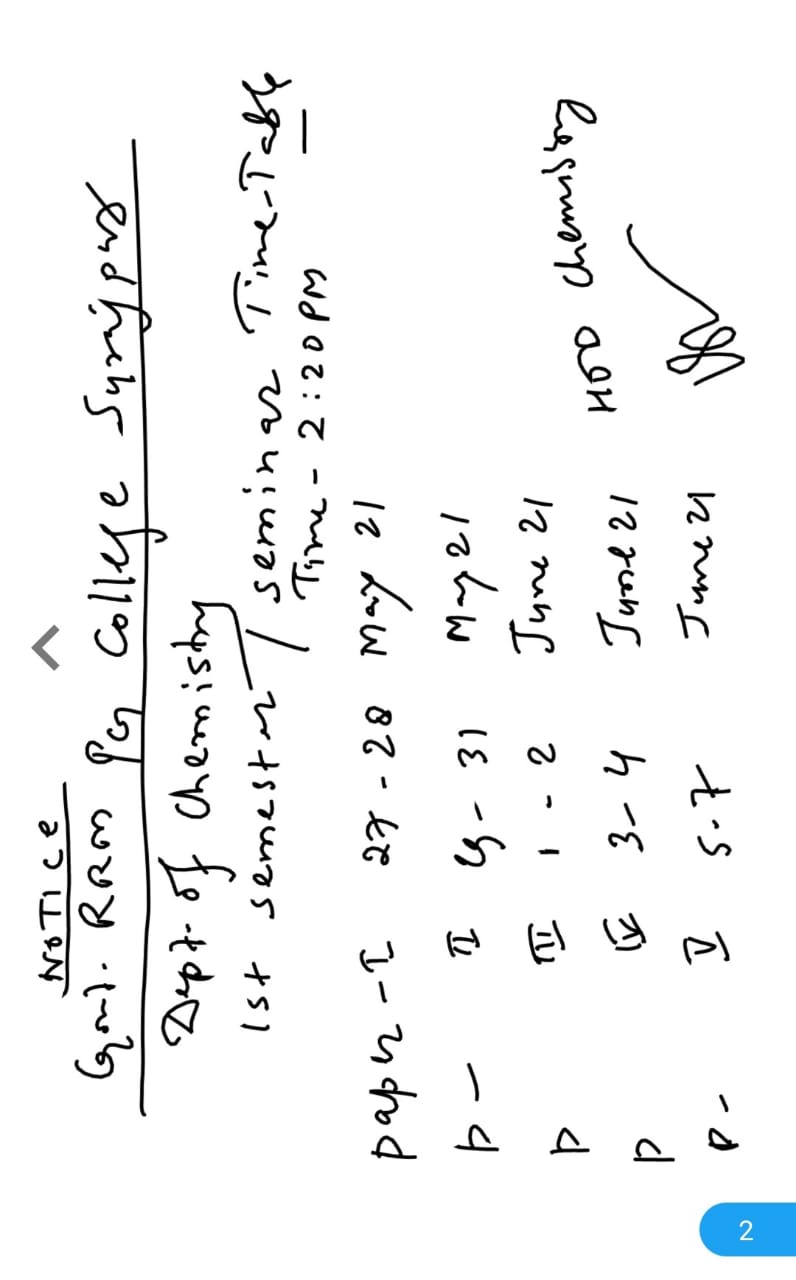 NOTICE
Govt. RRM PG College Surajpur
Dept. of Chemistry
1st semester / seminar Time-Table
Time - 2:20 PM
paper - I 27 - 28 May 21
p - II - 31 May 21
p III 1 - 2 June 21
p IV 3 - 4 June 21
p - V 5 - 7 June 21
HOD chemistry
2